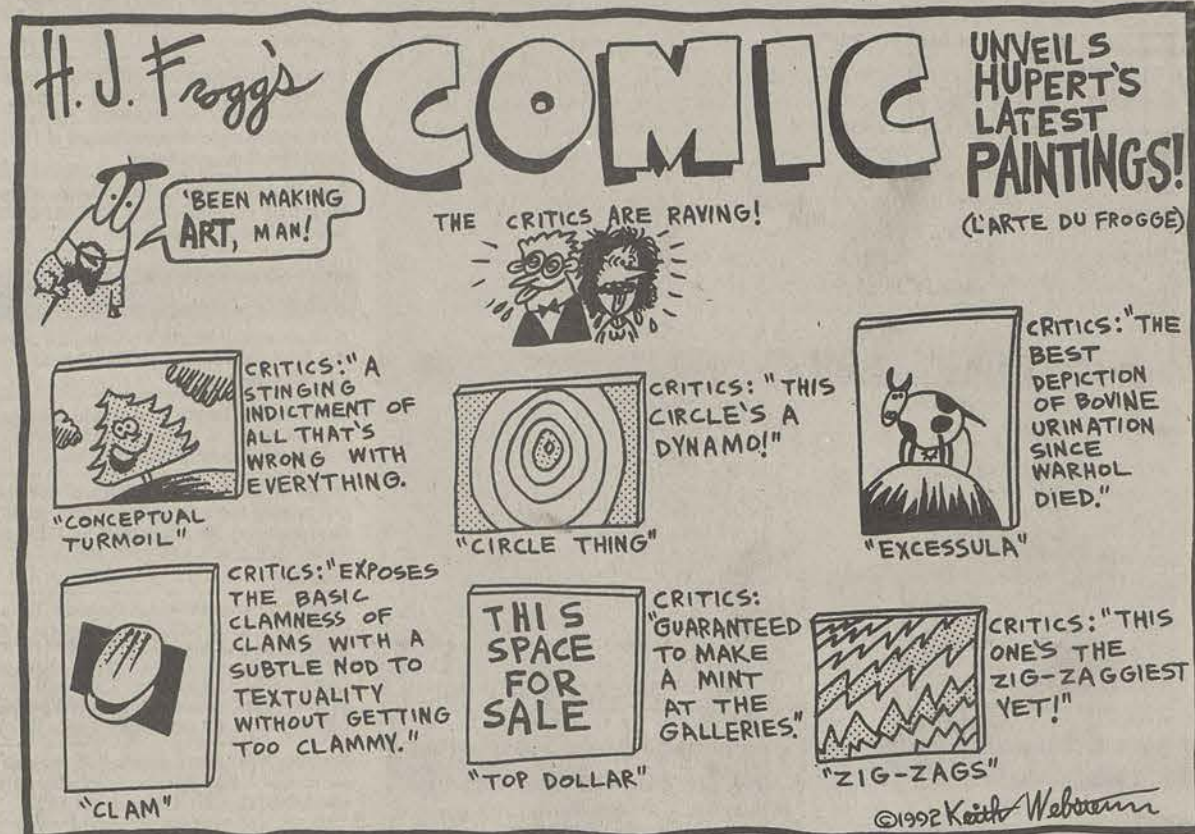 H. J. Frogg's
COMIC
UNVEILS
HUPERT'S
LATEST
PAINTINGS!
(L'ARTE DU FROGGE)
'BEEN MAKING
ART, MAN!
THE CRITICS ARE RAVING!
CRITICS: "A
STINGING
INDICTMENT OF
ALL THAT'S
WRONG WITH
EVERYTHING.
"CONCEPTUAL
TURMOIL"
CRITICS: "THIS
CIRCLE'S A
DYNAMO!"
"CIRCLE THING"
CRITICS: "THE
BEST
DEPICTION
OF BOVINE
URINATION
SINCE
WARHOL
DIED."
"EXCESSULA"
CRITICS: "EXPOSES
THE BASIC
CLAMNESS OF
CLAMS WITH A
SUBTLE NOD TO
TEXTUALITY
WITHOUT GETTING
TOO CLAMMY."
"CLAM"
THIS
SPACE
FOR
SALE
CRITICS:
"GUARANTEED
TO MAKE
A MINT
AT THE
GALLERIES."
"TOP DOLLAR"
CRITICS: "THIS
ONE'S THE
ZIG-ZAGGIEST
YET!"
"ZIG-ZAGS"
©1992 Keith